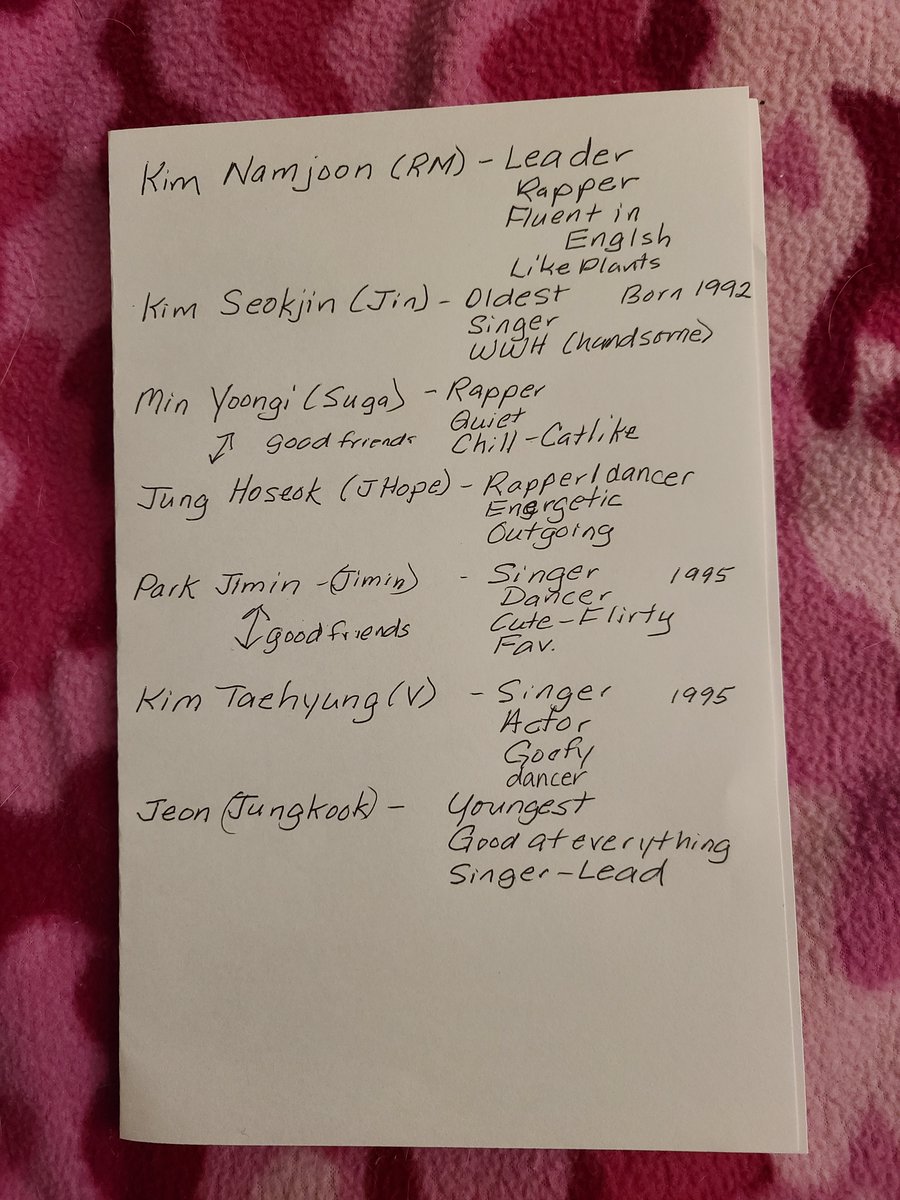 Kim Namjoon (RM) - Leader
Rapper
Fluent in
Englsh
Like Plants
Kim Seokjin (Jin) - Oldest Born 1992
Singer
WWH (handsome)
Min Yoongi (Suga) - Rapper
Quiet
good friends Chill - Catlike
Jung Hoseok (JHope) - Rapper/dancer
Energetic
Outgoing
Park Jimin - (Jimin) - Singer 1995
Dancer
good friends Cute - Flirty
Fav.
Kim Taehyung (V) - Singer 1995
Actor
Goofy
dancer
Jeon (Jungkook) - Youngest
Good at everything
Singer - Lead